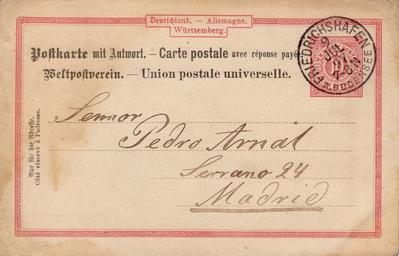 Deutschland. — Allemagne.
Württemberg.
Postkarte mit Antwort. — Carte postale avec réponse payée
Weltpostverein. — Union postale universelle.
FRIEDRICHSHAFEN
JUL
91
BODENSEE
Nur für die Adresse.
Côté réservé à l'adresse.
Sennor
Pedro Arnal
Serrano 24
Madrid